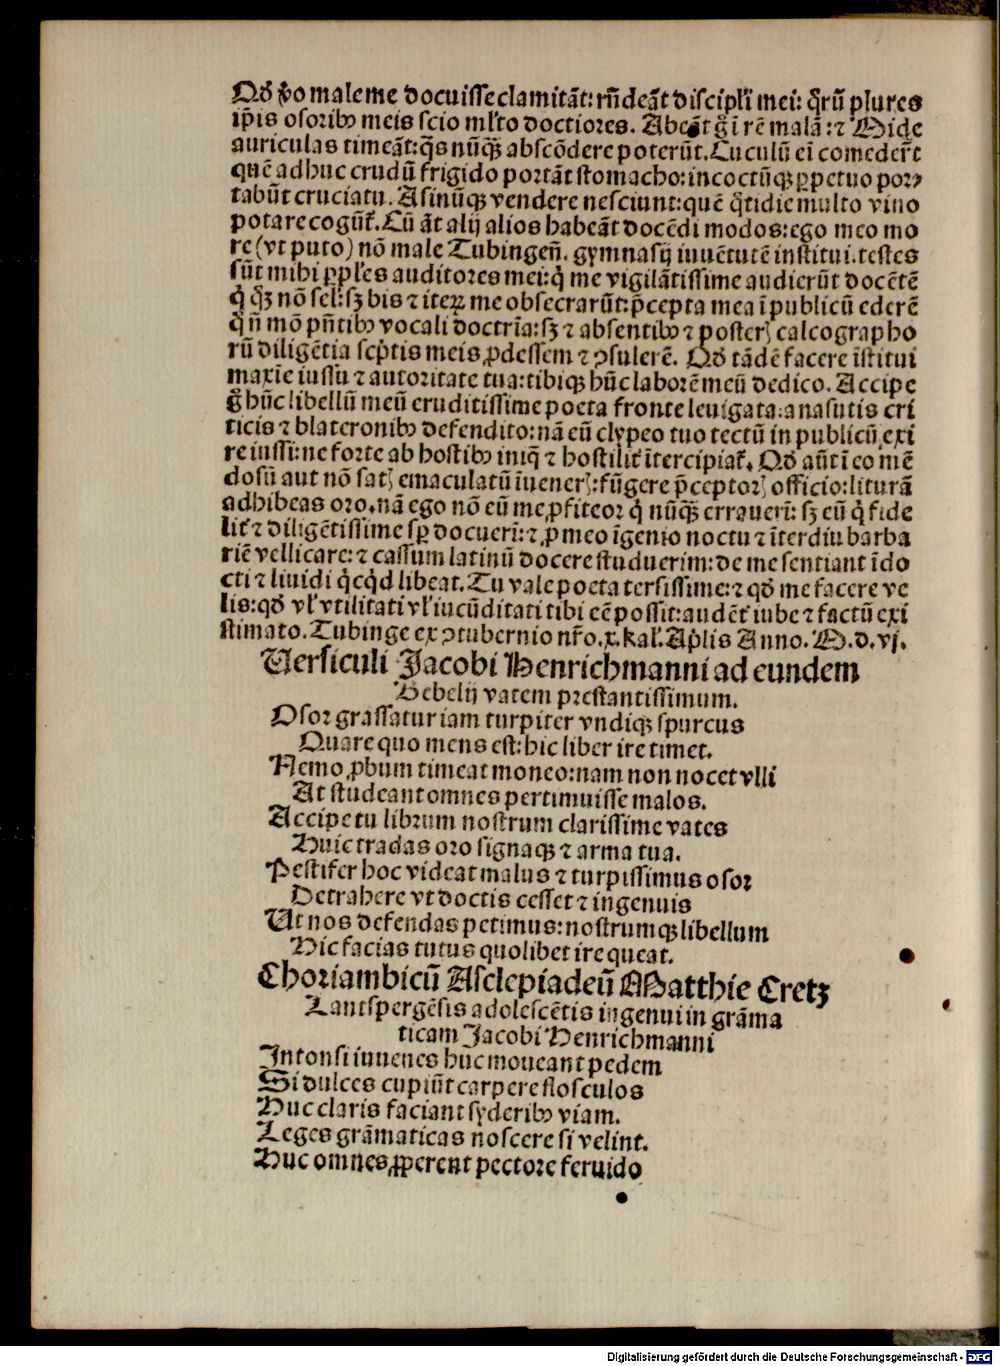 Qđ ꝟo male me docuisse clamitāt: rn̄deāt discipl'i mei: q̄rū plures
ip̄is osoribꝰ meis scio ml'to doctiores. Abeāt g̊ ī rē malā: ⁊ Mide
auriculas timeāt: q̄s nūq̄ꝫ abscōdere poterūt. Cuculū eī comeder̄t
quē adhuc crudū frigido portāt stomacho: incoctūqꝫ ꝑpetuo por⸗
tabūt cruciatu. Asinūqꝫ vendere nesciunt: quē q̄tidie multo vino
potare cogūt̄. Cū āt alij alios habeāt docēdi modos: ego meo mo
re (vt puto) nō male Tubingen̄. gymnasij iuuētutē institui. testes
sūt mihi ꝑpl'es auditores mei: q̇ me vigilātissime audierūt docētē
q̇ q̄ꝫ nō sel': sꝫ bis ⁊ iteꝝ me obsecrarūt: p̄cepta mea ī publicū ederē
q̇ n̄ mō pn̄tibꝰ vocali doctrīa: sꝫ ⁊ absentibꝰ ⁊ posterꝭ calcographo
rū diligētia scp̄tis meis ꝓdessem ⁊ ꝯsulerē. Qđ tādē facere īstitui
maxīe iussu ⁊ autoritate tua: tibiqꝫ hūc laborē meū dedico. Accipe
g̊ hūc libellū meū eruditissime poeta fronte leuigata: a nasutis cri
ticis ⁊ blateronibꝰ defendito: nā eū clypeo tuo tectū in publicū exi
re iussi: ne forte ab hostibꝰ iniq̄ ⁊ hostilit̄ ītercipiat̄. Qđ aūt ī eo mē
dosū aut nō satꝭ emaculatū īuenerꝭ: fūgere p̄ceptorꝭ officio: liturā
adhibeas oro. nā ego nō eū me ꝓfiteor q̇ nūq̄ꝫ errauerī: sꝫ eū q̇ fide
lit̄ ⁊ diligētissime sꝑ docuerī: ⁊ ꝓ meo īgenio noctu ⁊ īterdiu barba
riē vellicare: ⁊ cassum latinū docere studuerim: de me sentiant īdo
cti ⁊ liuidi q̇cq̇d libeat. Tu vale poeta tersissime: ⁊ qđ me facere ve
lis: qđ vl' vtilitati vl' iucūditati tibi eē possit: audēt̄ iube ⁊ factū exi
stimato. Tubinge ex ꝯtubernio nr̄o. x. kal'. Apl̄is Anno. M. d. vj.
Versiculi Jacobi Henrichmanni ad eundem
Bebelij vatem prestantissimum.
Osor grassatur iam turpiter vndiqꝫ spurcus
Quare quo mens est: hic liber ire timet.
Nemo ꝓbum timeat moneo: nam non nocet vlli
At studeant omnes pertimuisse malos.
Accipe tu librum nostrum clarissime vates
Huic tradas oro signaqꝫ ⁊ arma tua.
Pestifer hoc videat malus ⁊ turpissimus osor
Detrahere vt doctis cesset ⁊ ingenuis
Ut nos defendas petimus: nostrumqꝫ libellum
Hic facias tutus quolibet ire queat.
Choriambicū Asclepiadeū Matthie Cretz
Lantspergēsis adolescētis ingenui in grāma
ticam Jacobi Henrichmanni
Intonsi iuuenes huc moueant pedem
Si dulces cupiūt carpere flosculos
Huc claris faciant syderibꝰ viam.
Leges grāmaticas noscere si velint.
Huc omnes ꝓperent pectore feruido
Digitalisierung gefördert durch die Deutsche Forschungsgemeinschaft - DFG